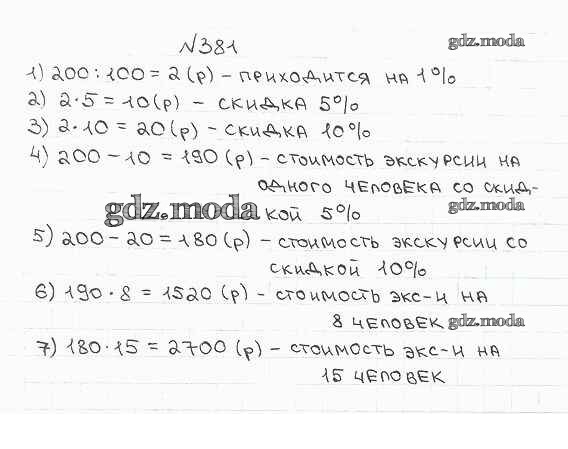 №381
gdz.moda
1) 200 : 100 = 2 (р) – приходится на 1%
2) 2·5 = 10 (р) – скидка 5%
3) 2·10 = 20 (р) – скидка 10%
4) 200 – 10 = 190 (р) – стоимость экскурсии на
одного человека со скид-
gdz.moda
gdz.moda
кой 5%
5) 200 – 20 = 180 (р) – стоимость экскурсии со
скидкой 10%
6) 190 · 8 = 1520 (р) – стоимость экс-и на
8 человек
gdz.moda
7) 180 · 15 = 2700 (р) – стоимость экс-и на
15 человек